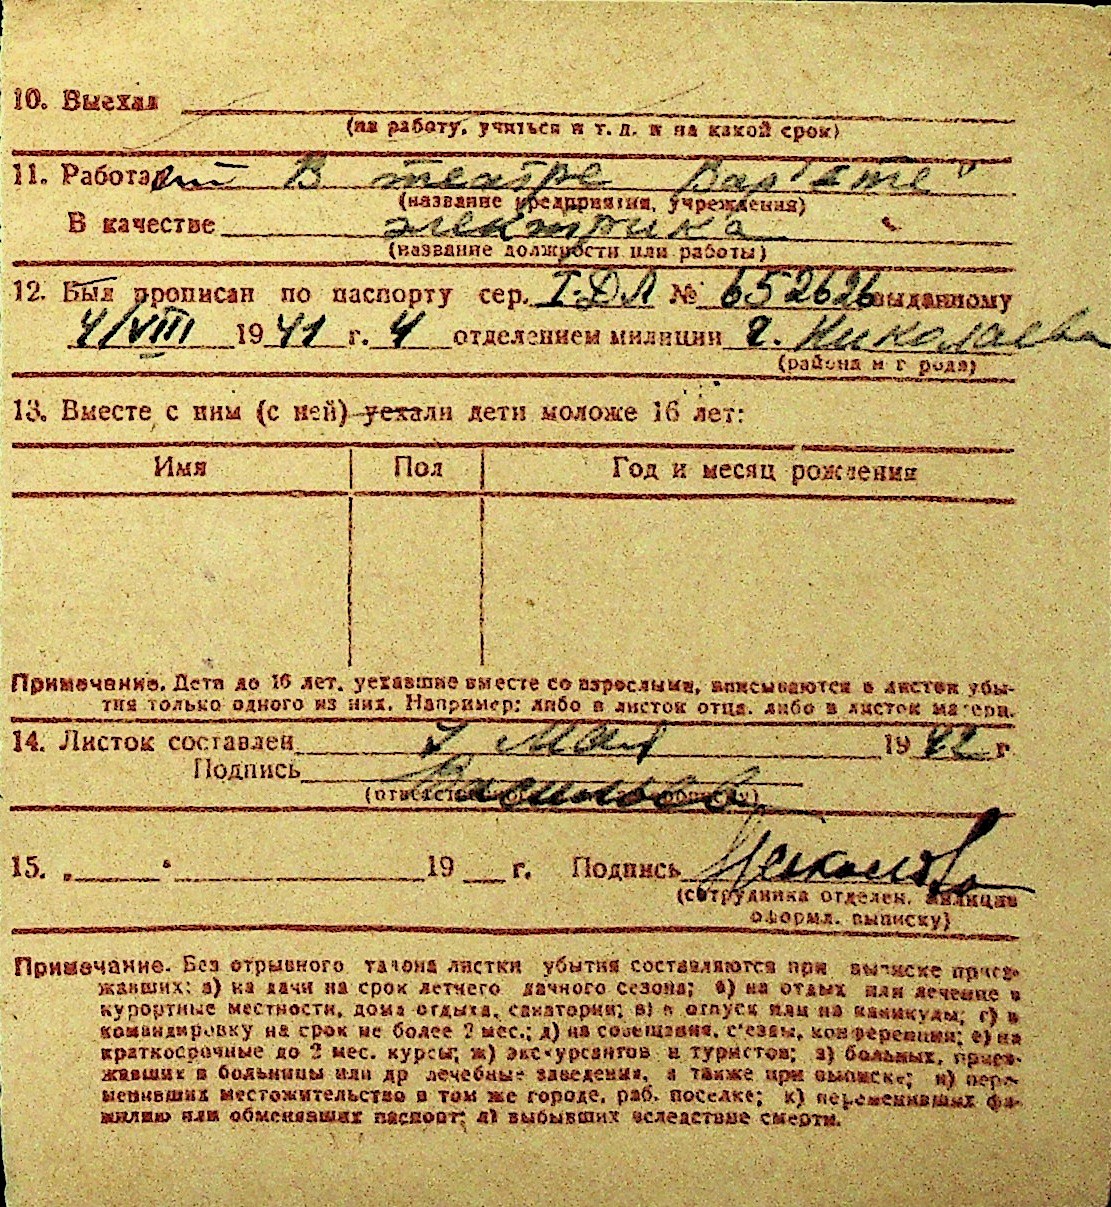 10. Выехал
(на работу, учиться и т. д. и на какой срок)
11. Работает в театре Варьете"
(название предприятия, учреждения)
В качестве электрика
(название должности или работы)
12. Был прописан по паспорту сер. I-ДЛ № 652626 выданному
4/VIII 1941 г. 4 отделением милиции г. Николаева
(района и города)
13. Вместе с ним (с ней) уехали дети моложе 16 лет:
Имя Пол Год и месяц рождения
Примечание. Дети до 16 лет, уехавшие вместе со взрослыми, вписываются в листок убы-
тия только одного из них. Например: либо в листок отца, либо в листок матери.
14. Листок составлен 7 Мая 1942 г
Подпись Васильев
15. 19 г. Подпись
(сотрудника отделен. милиции
оформл. выписку)
Примечание. Без отрывного талона листки убытия составляются при выписке приез-
жавших: а) на дачи на срок летнего дачного сезона; б) на отдых или лечение в
курортные местности, дома отдыха, санатории; в) в отпуск или на каникулы; г) в
командировку на срок не более 2 мес.; д) на совещания, с'езды, конференции; е) на
краткосрочные до 2 мес. курсы; ж) экскурсантов и туристов; з) больных, приез-
жавших в больницы или др лечебные заведения, а также при выписке; и) пере-
менивших местожительство в том же городе, раб. поселке; к) переменивших фа-
милию или обменявших паспорт; л) выбывших вследствие смерти.